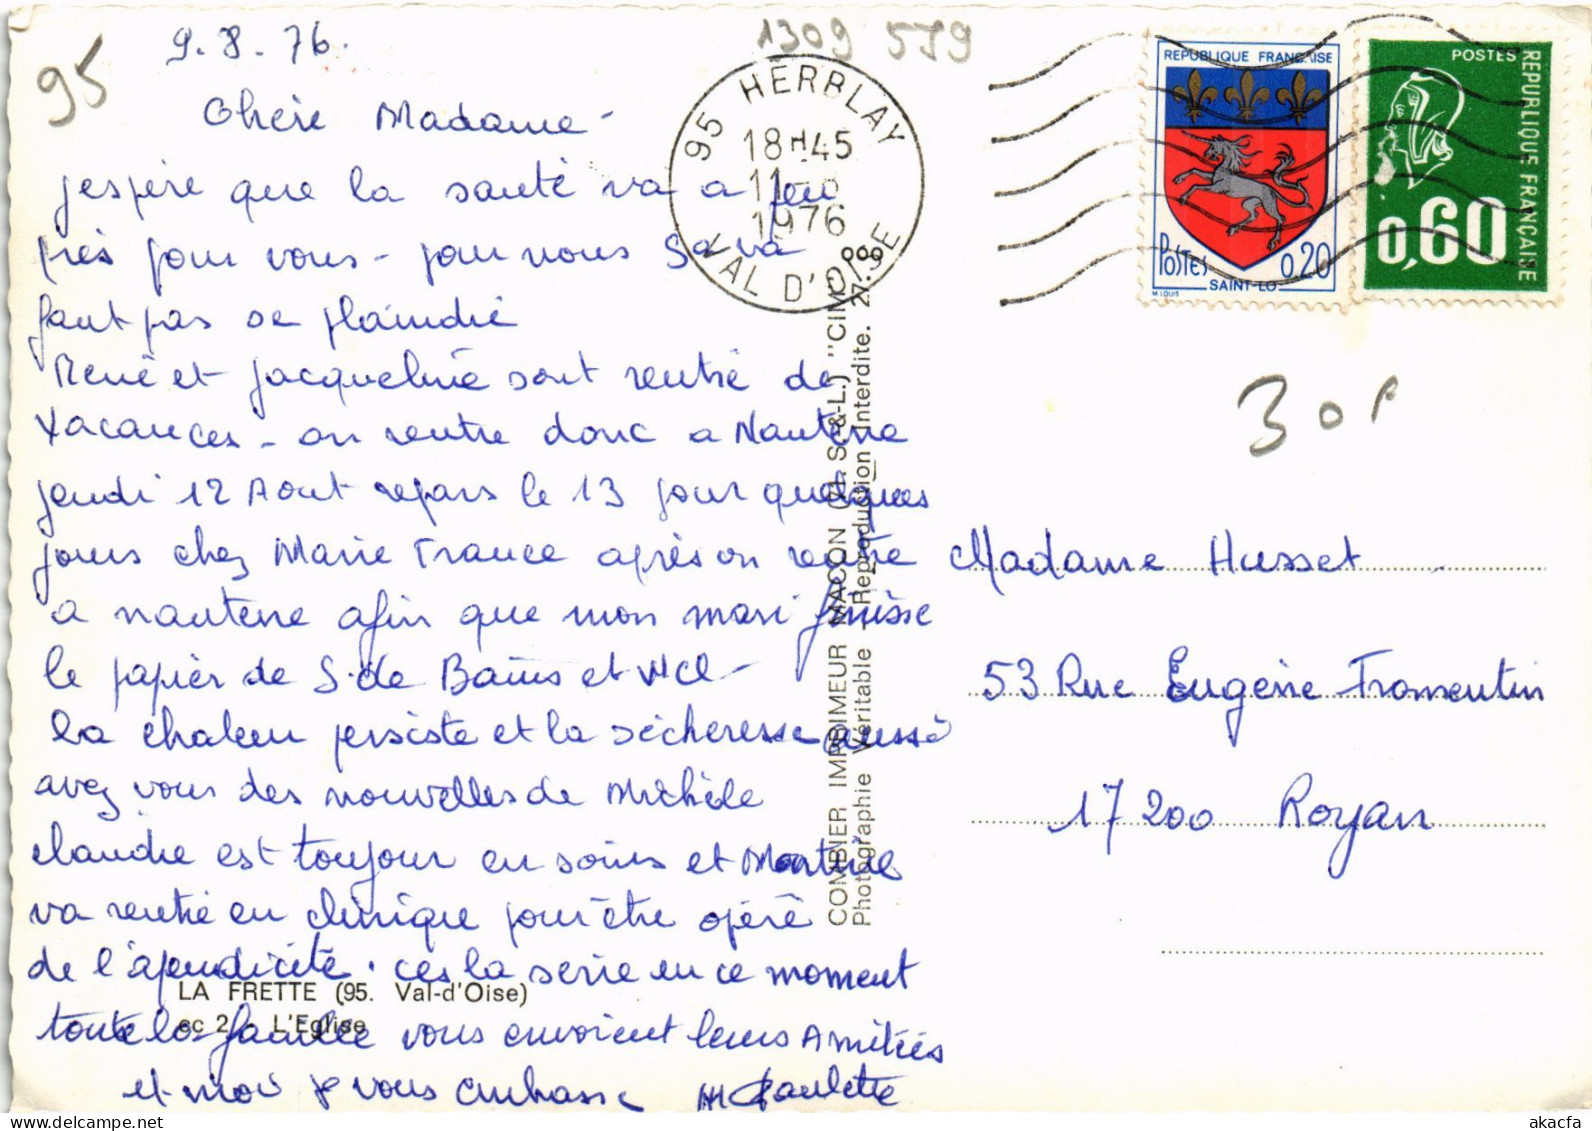 9.8.76.
95
1309 579
Chère Madame -
j'espère que la santé va a peu
près pour vous - pour nous Sa va
faut pas se plaindre
René et Jacqueline sont rentré de
Vacances - on rentre donc a Nanterre
jeudi 12 Aout repars le 13 pour quelques
jours chez Marie France après on rentre
a nanterre afin que mon mari finisse
le papier de S. de Bains et WC -
la chaleur persiste et la sécheresse aussi
avez vous des nouvelles de Michèle
claudie est toujour en soins et Martine
va rentré en clinique pour être opéré
de l'apendicite. ces la serie en ce moment
toute la famille vous envoient leurs Amitiés
et moi je vous embrasse Paulette
LA FRETTE (95. Val-d'Oise)
ec 2 L'Eglise
95 HERBLAY
18H45
11
1976
VAL D'OISE
REPUBLIQUE FRANÇAISE
POSTES 0,20
SAINT-LO
M. LOUIS
POSTES
REPUBLIQUE FRANÇAISE
0,60
COMBIER IMPRIMEUR MACON (71. S.-&-L.) "CIM
Photographie Véritable - Reproduction Interdite. 27.
30F
Madame Husset
53 Rue Eugène Fromentin
17200 Royan
www.akacfa.com
akacfa